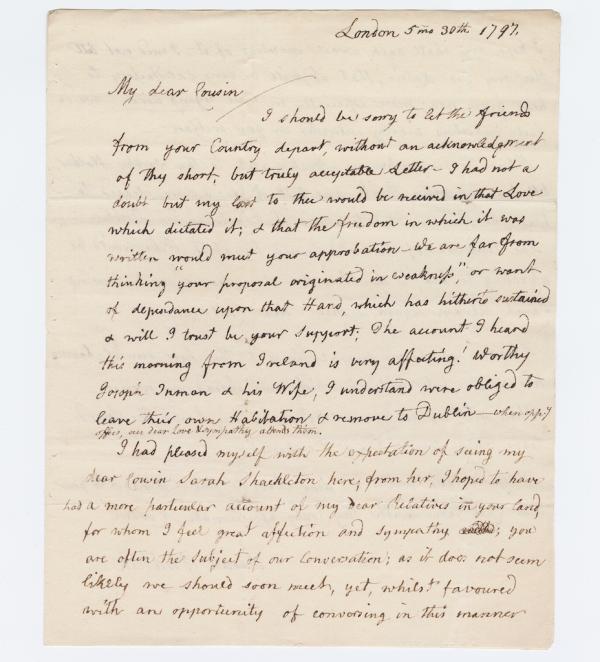 London 5mo 30th 1797.
My dear Cousin
I should be sorry to let the friends
from your Country depart, without an acknowledgment
of thy short, but truly acceptable Letter – I had not a
doubt but my last to thee would be received in that Love
which dictated it; & that the freedom in which it was
written would meet your approbation – We are far from
thinking "your proposal originated in weakness", or want
of dependance upon that Hand, which has hitherto sustained
& will I trust be your support; The account I heard
this morning from Ireland is very affecting! Worthy
Joseph Inman & his Wife, I understand were obliged to
leave their own Habitation & remove to Dublin – when oppy
offers, our dear love & sympathy attends them.
I had pleased myself with the expectation of seeing my
dear Cousin Sarah Shackleton here; from her, I hoped to have
had a more particular account of my dear Relatives in your land,
for whom I feel great affection and sympathy; you
are often the subject of our Conversation; as it does not seem
likely we should soon meet, yet, whilst favoured
with an opportunity of conversing in this manner